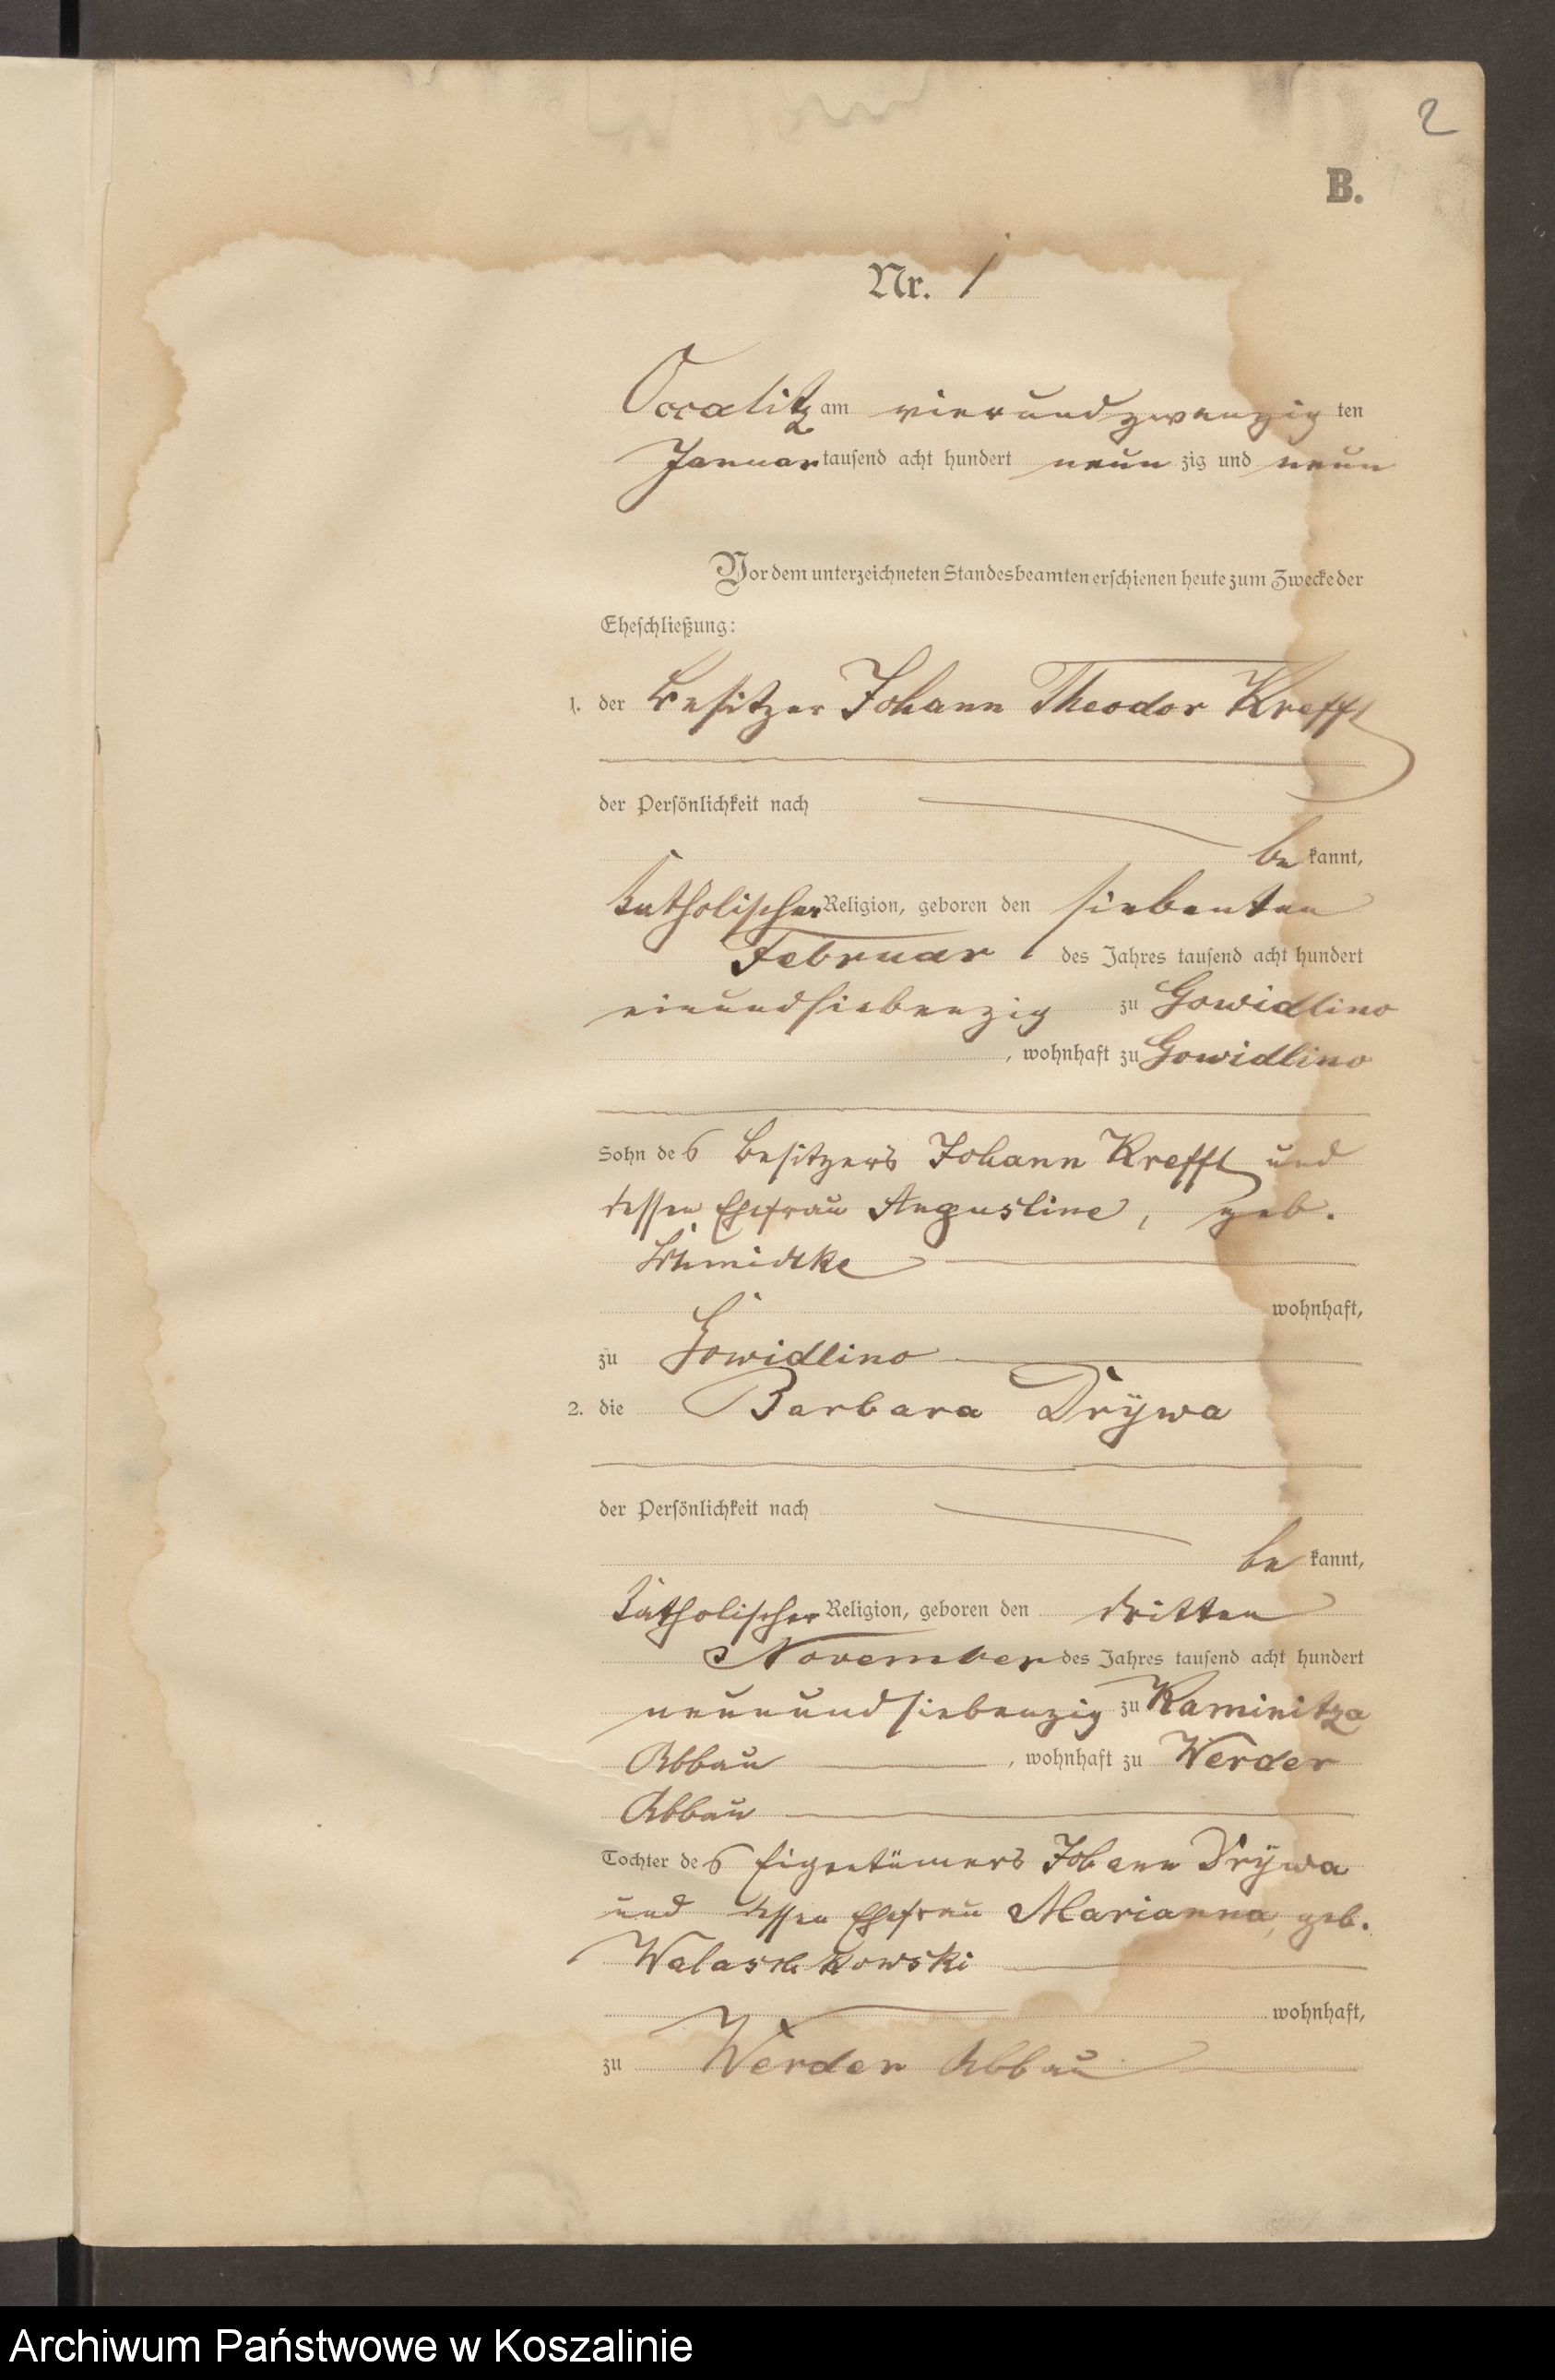 2
B.
Nr. 1
Occalitz am vierundzwanzig ten
Januar tausend acht hundert neun zig und neun
Vor dem unterzeichneten Standesbeamten erschienen heute zum Zwecke der
Eheschließung:
1. der Besitzer Johann Theodor Krefft
der Persönlichkeit nach
be kannt,
katholischer Religion, geboren den siebenten
Februar des Jahres tausend acht hundert
einundsiebenzig zu Gowidlino
, wohnhaft zu Gowidlino
Sohn des Besitzers Johann Krefft und
dessen Ehefrau Augustine, geb.
Schmidtke
wohnhaft,
zu Gowidlino
2. die Barbara Drÿwa
der Persönlichkeit nach
be kannt,
katholischer Religion, geboren den dritten
November des Jahres tausend acht hundert
neunundsiebenzig zu Kaminitza
Abbau , wohnhaft zu Werder
Abbau
Tochter des Eigentümers Johann Drÿwa
und dessen Ehefrau Marianna, geb.
wohnhaft,
zu Werder Abbau
Archiwum Państwowe w Koszalinie